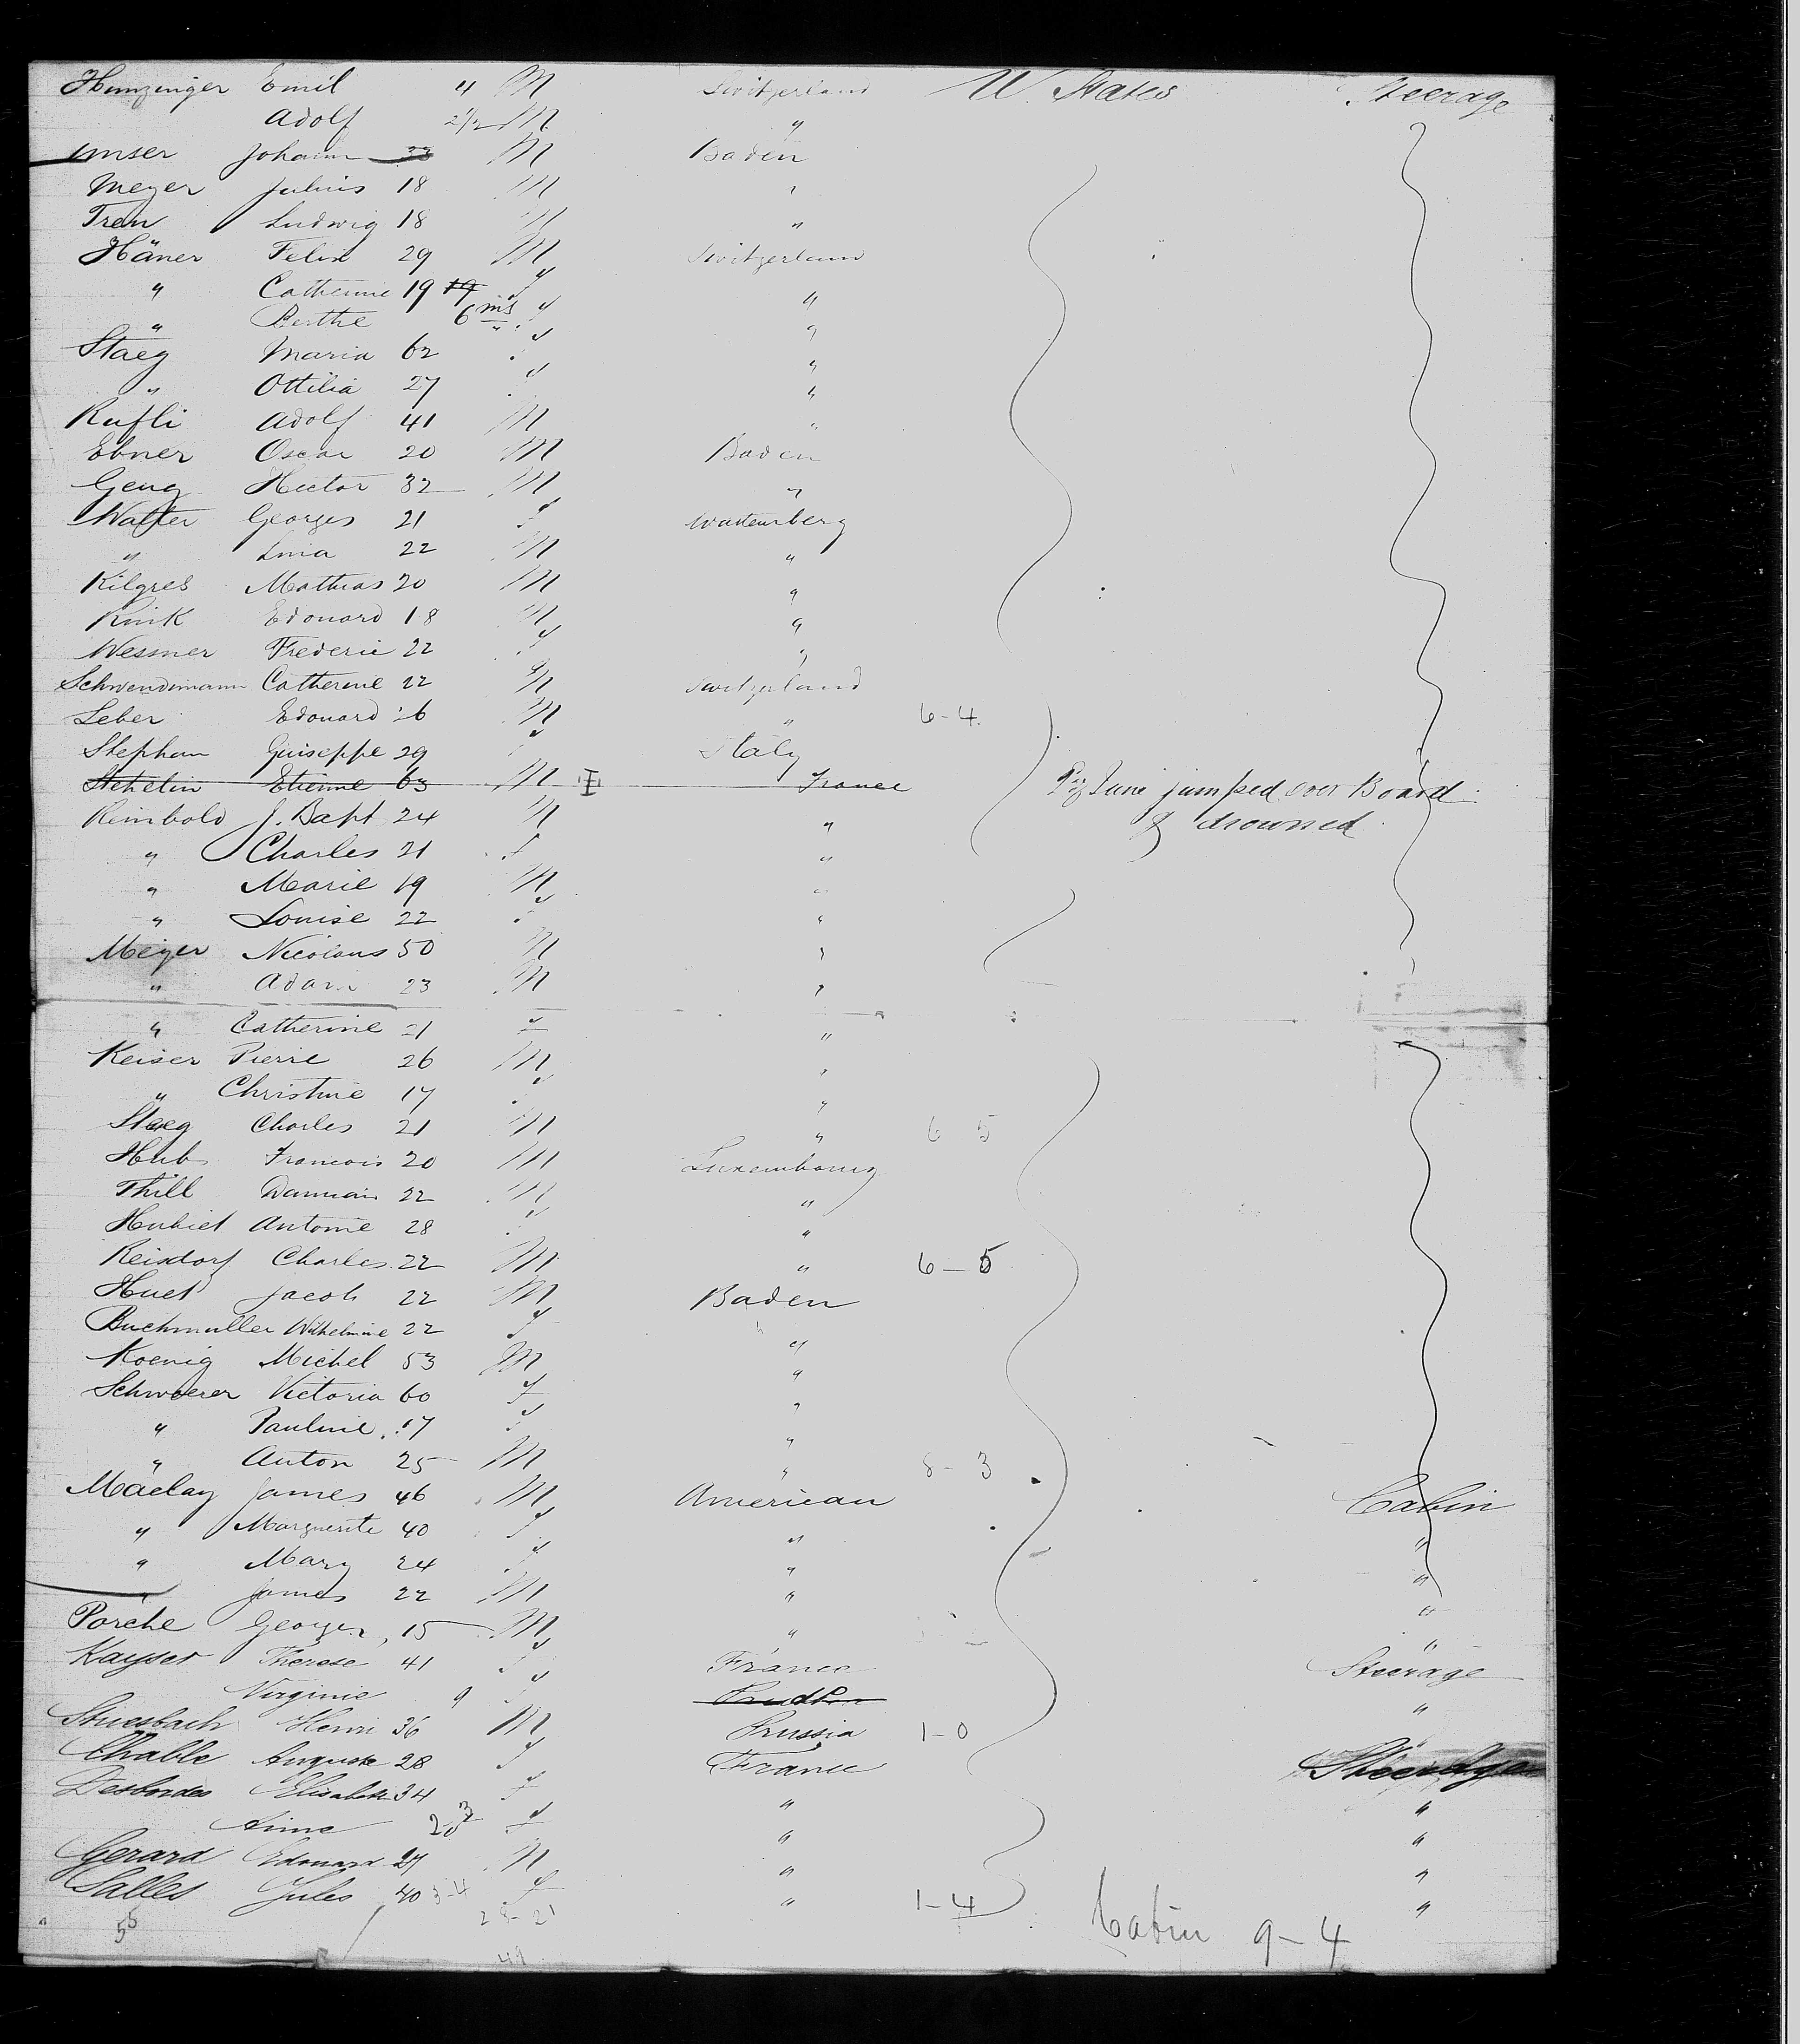 Hunzinger Emil 4 M Switzerland U. States Steerage
Adolf 2 1/2 M "
Johann 33 M Baden
Meyer Julius 18 M "
Treu Ludwig 18 M "
Häner Felix 29 M Switzerland
" Catherine 19 19 f "
" Berthe 6 ms f "
Staeg Maria 62 f "
" Ottilia 27 f "
Rufli Adolf 41 M "
Ebner Oscar 20 M Baden
Geng Hector 32 M "
Walter Georges 21 f Wurtemberg
" Lina 22 M "
Kilgres Mathias 20 M "
Rink Edouard 18 M "
Wessner Frederic 22 f "
Schwendimann Catherine 22 M Switzerland
Leber Edouard 26 M " 6-4
Stephan Guiseppe 29 f Italy
Stehelin Etienne 63 M France June jumped over Board
& drowned
Reinbold J. Bapt 24 M "
" Charles 21 f "
" Marie 19 M "
" Louise 22 f "
Meyer Nicolaus 50 M "
" Adam 23 M "
" Catherine 21 f "
Keiser Pierre 26 M "
" Christine 17 f "
Staeg Charles 21 M " 6 5
Hub Francois 20 M Luxembourg
Thill Damian 22 M "
Hubiet Antoine 28 f "
Reisdorf Charles 22 M " 6-5
Huet Jacob 22 M Baden
Buchmuller Wilhelmine 22 f "
Koenig Michel 53 M "
Schwoerer Victoria 60 f "
" Pauline 17 f "
" Anton 25 M " 8-3
Maclay James 46 M American Cabin
" Marguerite 40 f " "
" Mary 24 f " "
" James 22 M " "
Porche George 15 M " "
Kayser Therese 41 f France Steerage
Virginie 9 f "
Stuesbach Henri 36 M Prussia 1-0 "
Chable Auguste 28 f France Steerage
Desbordes Elisabeth 34 f " "
Aime f " "
Gerard Edouard 27 M " "
Salles Jules 40 f " 1-4 "
55 28-21 Cabin 9-4
49